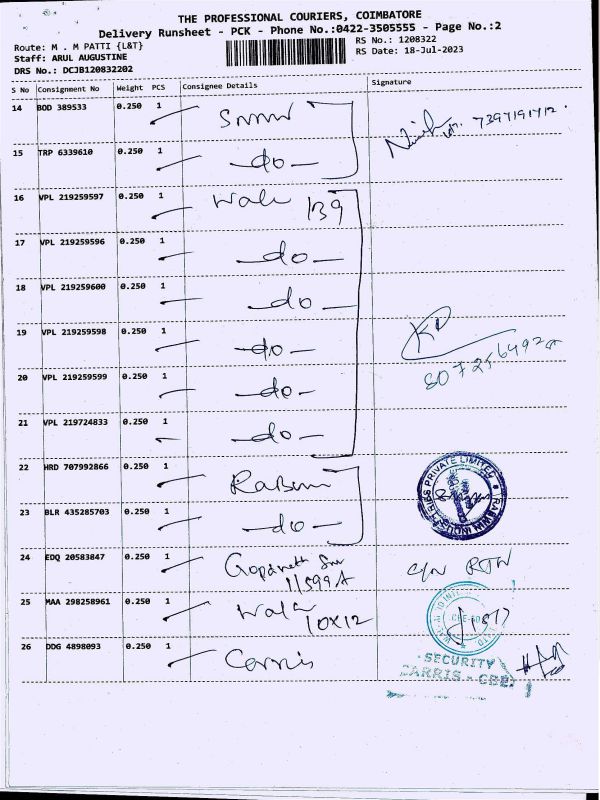 THE PROFESSIONAL COURIERS, COIMBATORE
Delivery Runsheet - PCK - Phone No.:0422-3505555 - Page No.:2
Route: M . M PATTI {L&T}
RS No.: 1208322
Staff: ARUL AUGUSTINE
RS Date: 18-Jul-2023
DRS No.: DCJB120832202
S No Consignment No Weight PCS Consignee Details Signature
14 BOD 389533 0.250 1
7397191712.
15 TRP 6339610 0.250 1 -do-
16 VPL 219259597 0.250 1 139
17 VPL 219259596 0.250 1 -do-
18 VPL 219259600 0.250 1 -do-
19 VPL 219259598 0.250 1 -do-
20 VPL 219259599 0.250 1 -do-
21 VPL 219724833 0.250 1 -do-
22 HRD 707992866 0.250 1
PRIVATE LIMITED
23 BLR 435285703 0.250 1 -do-
24 EDQ 20583847 0.250 1 Gopinath
1/599A
25 MAA 298258961 0.250 1
10x12
26 DDG 4898093 0.250 1 Carris
SECURITY
CARRIS - CBE.